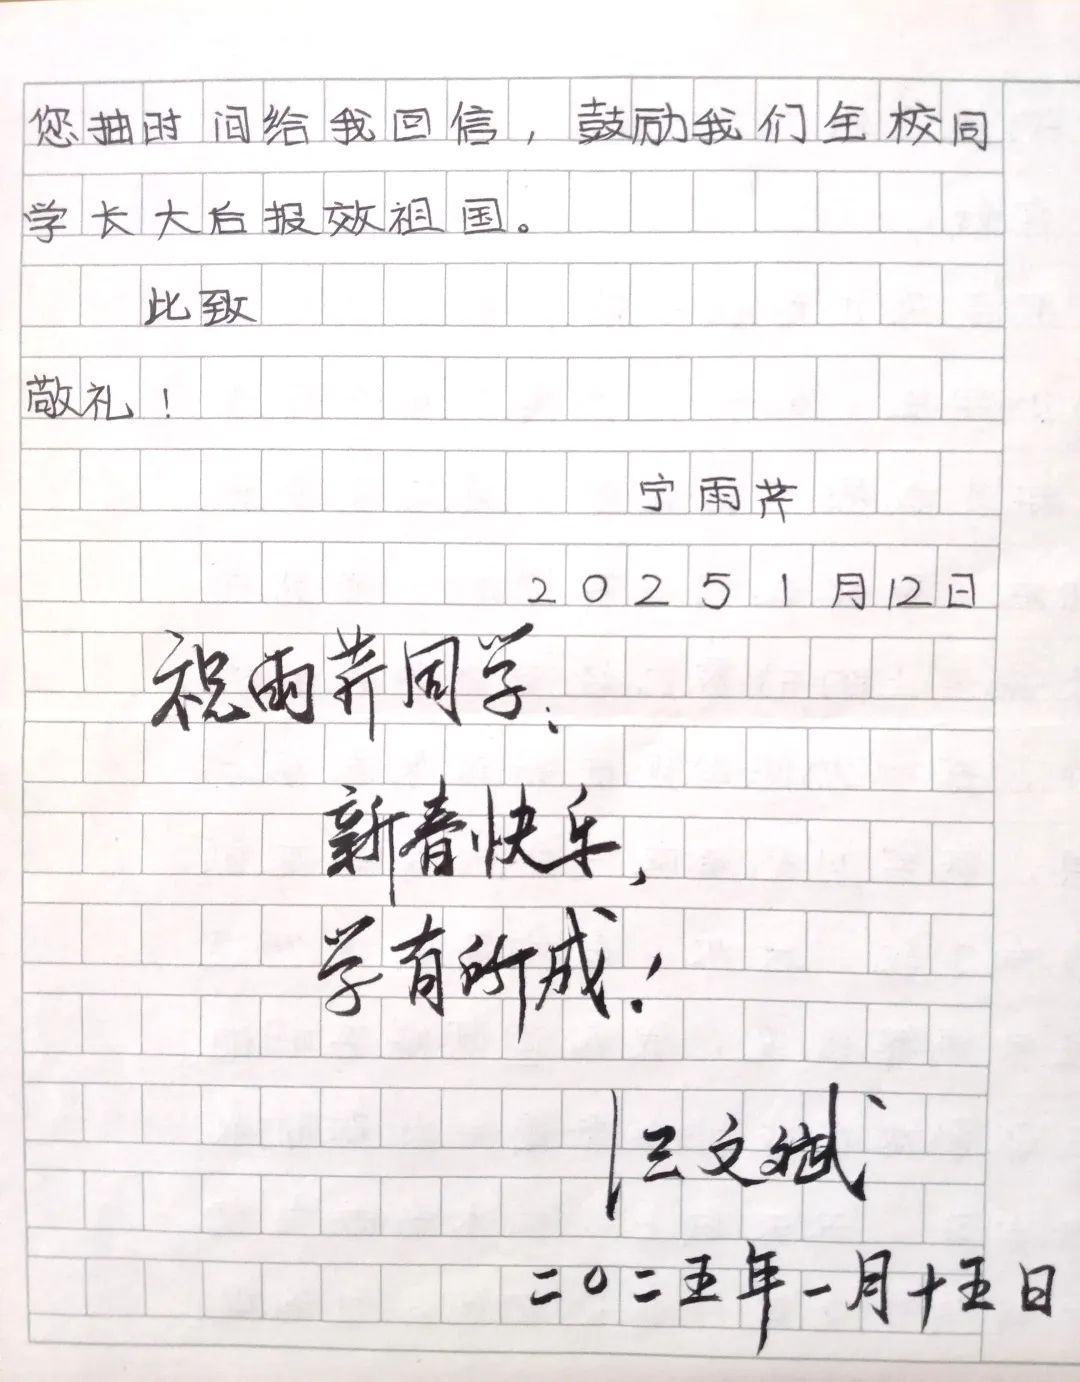 您抽时间给我回信，鼓励我们全校同
学长大后报效祖国。
此致
敬礼！
宁雨芹
2025 1月12日
祝雨芹同学：
新春快乐，
学有所成！
汪文斌
二〇二五年一月十五日